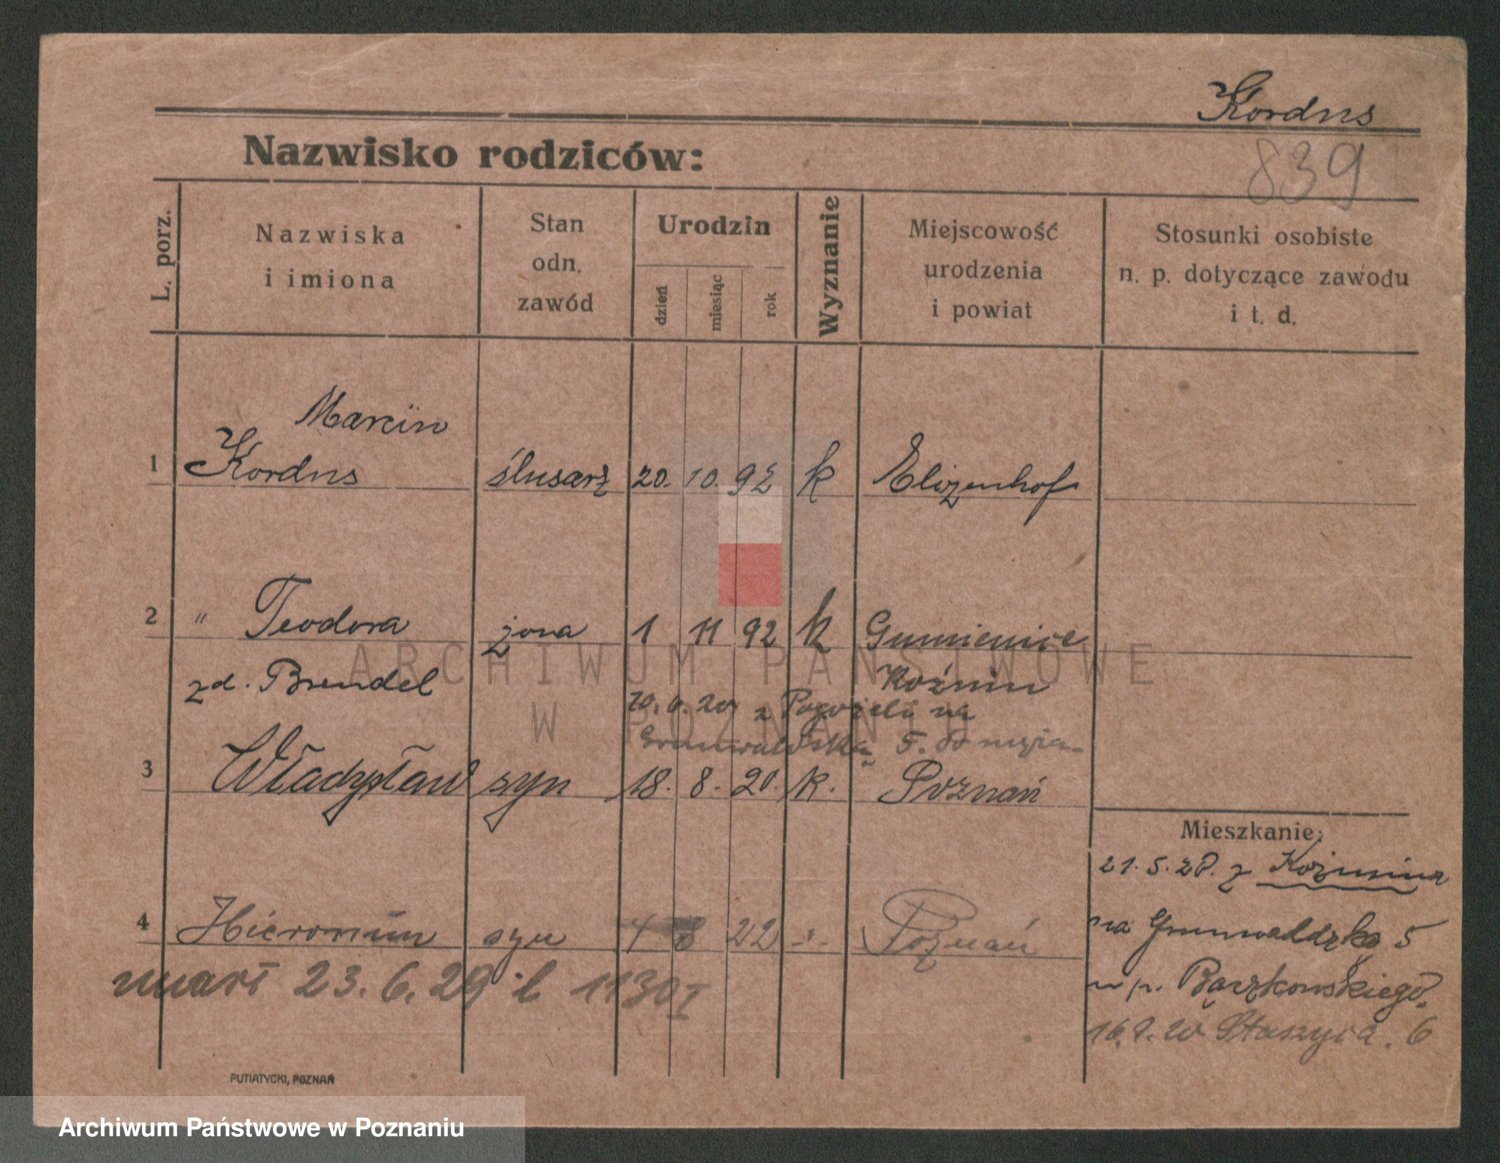 Kordus
839
Nazwisko rodziców:
L. porz.
Nazwiska
i imiona
Stan
odn.
zawód
Urodzin
dzień
miesiąc
rok
Wyznanie
Miejscowość
urodzenia
i powiat
Stosunki osobiste
n. p. dotyczące zawodu
i t. d.
Marcin
1 Kordus ślusarz 20. 10. 92 k Elizenhof
2 " Teodora żona 1 11 92 k Gumienice
zd. Brendel Koźmin
z Pogorzeli na
Grunwaldzką 5. do męża
3 Władysław syn 18. 8. 20. k. Poznań
Mieszkanie:
21.5.20. z Koźmina
na Grunwaldzką 5
u p. Bączkowskiego
4 Hieronim syn 4 8 22 Poznań
Staszyca 6
umarł 23.6.29 l 1130 I
PUTIATYCKI, POZNAŃ
ARCHIWUM PAŃSTWOWE
W POZNANIU
Archiwum Państwowe w Poznaniu